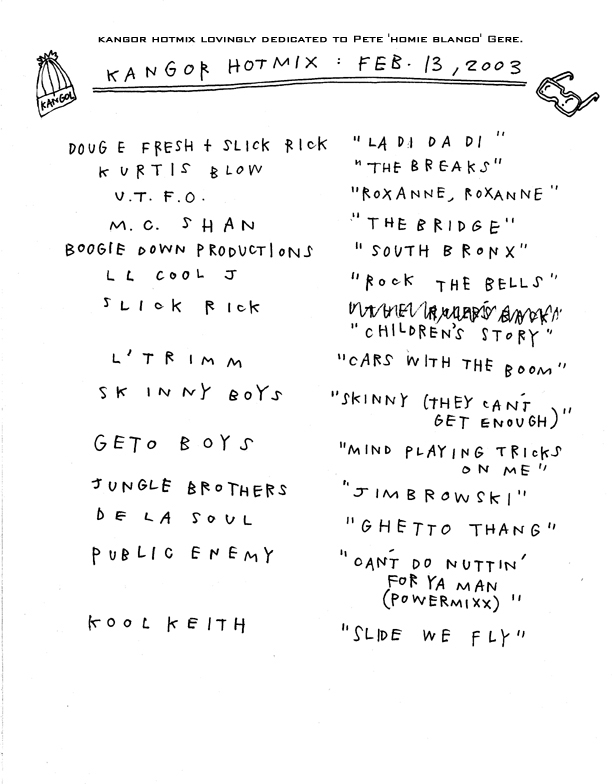 KANGOR HOTMIX LOVINGLY DEDICATED TO PETE 'HOMIE BLANCO' GERE.
KANGOR HOTMIX : FEB. 13, 2003
KANGOL
DOUG E FRESH + SLICK RICK "LA DI DA DI"
KURTIS BLOW "THE BREAKS"
U.T.F.O. "ROXANNE, ROXANNE"
M.C. SHAN "THE BRIDGE"
BOOGIE DOWN PRODUCTIONS "SOUTH BRONX"
LL COOL J "ROCK THE BELLS"
SLICK RICK
"CHILDREN'S STORY"
L'TRIMM "CARS WITH THE BOOM"
SKINNY BOYS "SKINNY (THEY CAN'T
GET ENOUGH)"
GETO BOYS "MIND PLAYING TRICKS
ON ME"
JUNGLE BROTHERS "JIMBROWSKI"
DE LA SOUL "GHETTO THANG"
PUBLIC ENEMY "CAN'T DO NUTTIN'
FOR YA MAN
(POWERMIXX)"
KOOL KEITH "SLIDE WE FLY"